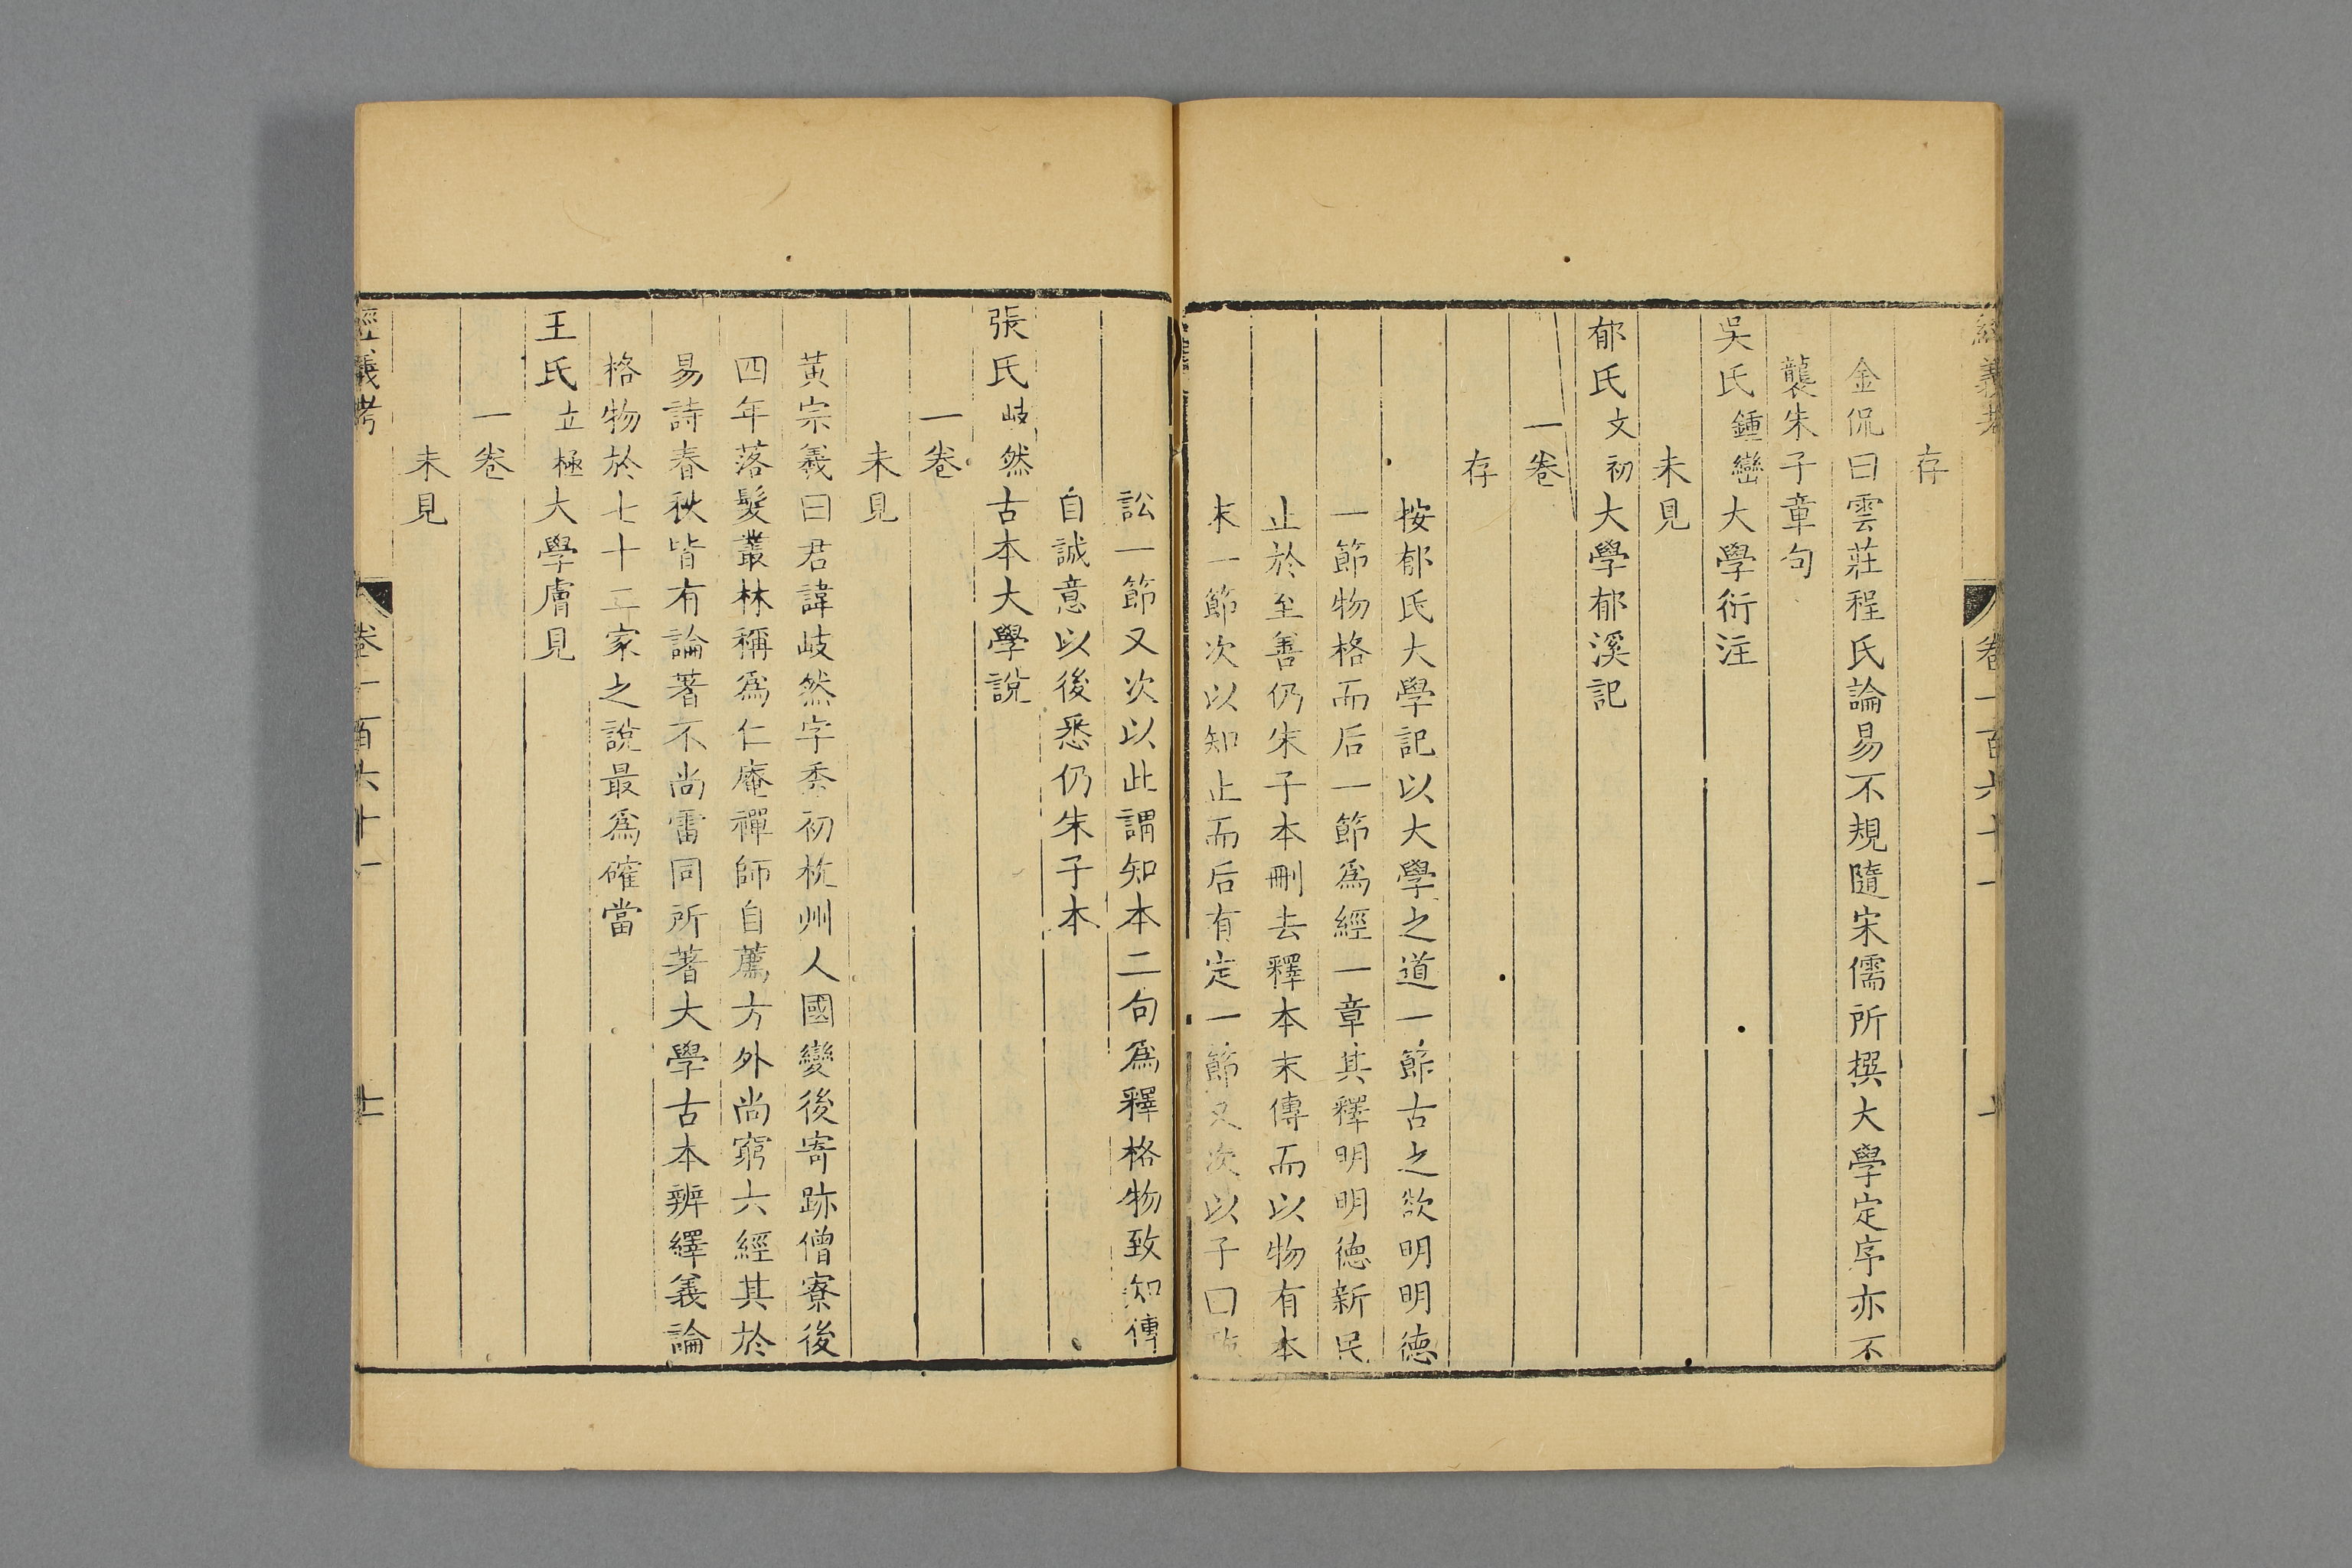 經義考 卷一百六十一
存
金侃曰雲莊程氏論易不規隨宋儒所撰大學定序亦不
襲朱子章句
吳氏鍾巒大學衍注
未見
郁氏文初大學郁溪記
一卷
存
按郁氏大學記以大學之道一節古之欲明明德
一節物格而后一節爲經一章其釋明明德新民
止於至善仍朱子本刪去釋本末傳而以物有本
末一節次以知止而后有定一節又次以子曰
訟一節又次以此謂知本二句爲釋格物致知傳
自誠意以後悉仍朱子本
張氏岐然古本大學說
一卷
未見
黃宗羲曰君諱岐然字秀初杭州人國變後寄跡僧寮後
四年落髮叢林稱爲仁庵禪師自薦方外尚窮六經其於
易詩春秋皆有論著不尚雷同所著大學古本辨繹義論
格物於七十二家之說最爲確當
王氏立極大學膚見
一卷
未見
經義考 卷一百六十一 十一